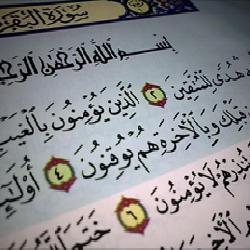 سُورَةُ الْبَقَرَ
بِسْمِ اللَّهِ الرَّحْمَٰنِ الرَّحِي
هُدًى لِّلْمُتَّقِينَ ٢ الَّذِينَ يُؤْمِنُونَ بِالْغَيْبِ
قَبْلِكَ وَبِالْآخِرَةِ هُمْ يُوقِنُونَ ٤ أُولَٰئِ
نذِرْهُمْ لَا يُؤْمِنُونَ ٦ خَتَمَ اللَّهُ